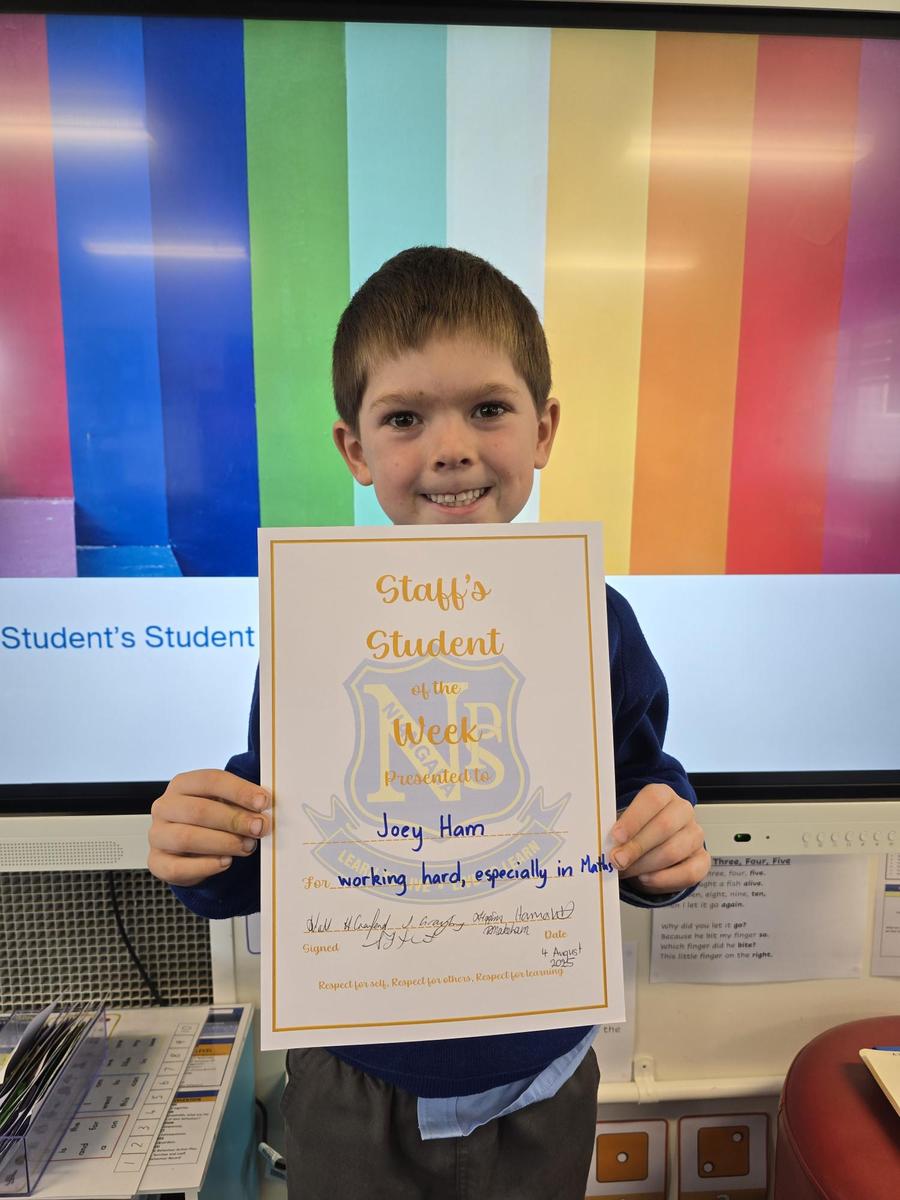 Student's Student
Staff's
Student
of the
Week
Presented to
Joey Ham
For working hard, especially in Maths
Signed
Date
4 August
2025
Respect for self, Respect for others, Respect for learning
NPS
LEARN
LEARN
Three, Four, Five
three, four, five.
fish alive.
eight, nine, ten,
I let it go again.
Why did you let it go?
Because he bit my finger so.
Which finger did he bite?
This little finger on the right.
the
1 2 3 4 5 6 7 8 9 10